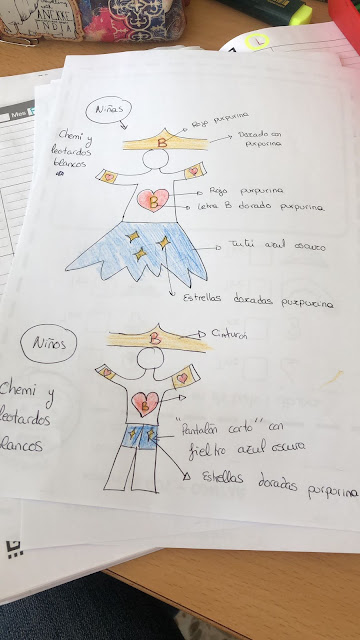 ANEKKE
INDIA
Mes
Niñas
Chemi y
leotardos
blancos
Rojo purpurina
Dorado con
purpurina
B
Rojo purpurina
Letra B dorado purpurina
B
Tutú azul oscuro
Estrellas doradas purpurina
Niños
B
Cinturón
Chemi y
leotardos
blancos
B
"Pantalón corto" con
fieltro azul oscuro
Estrellas doradas purpurina